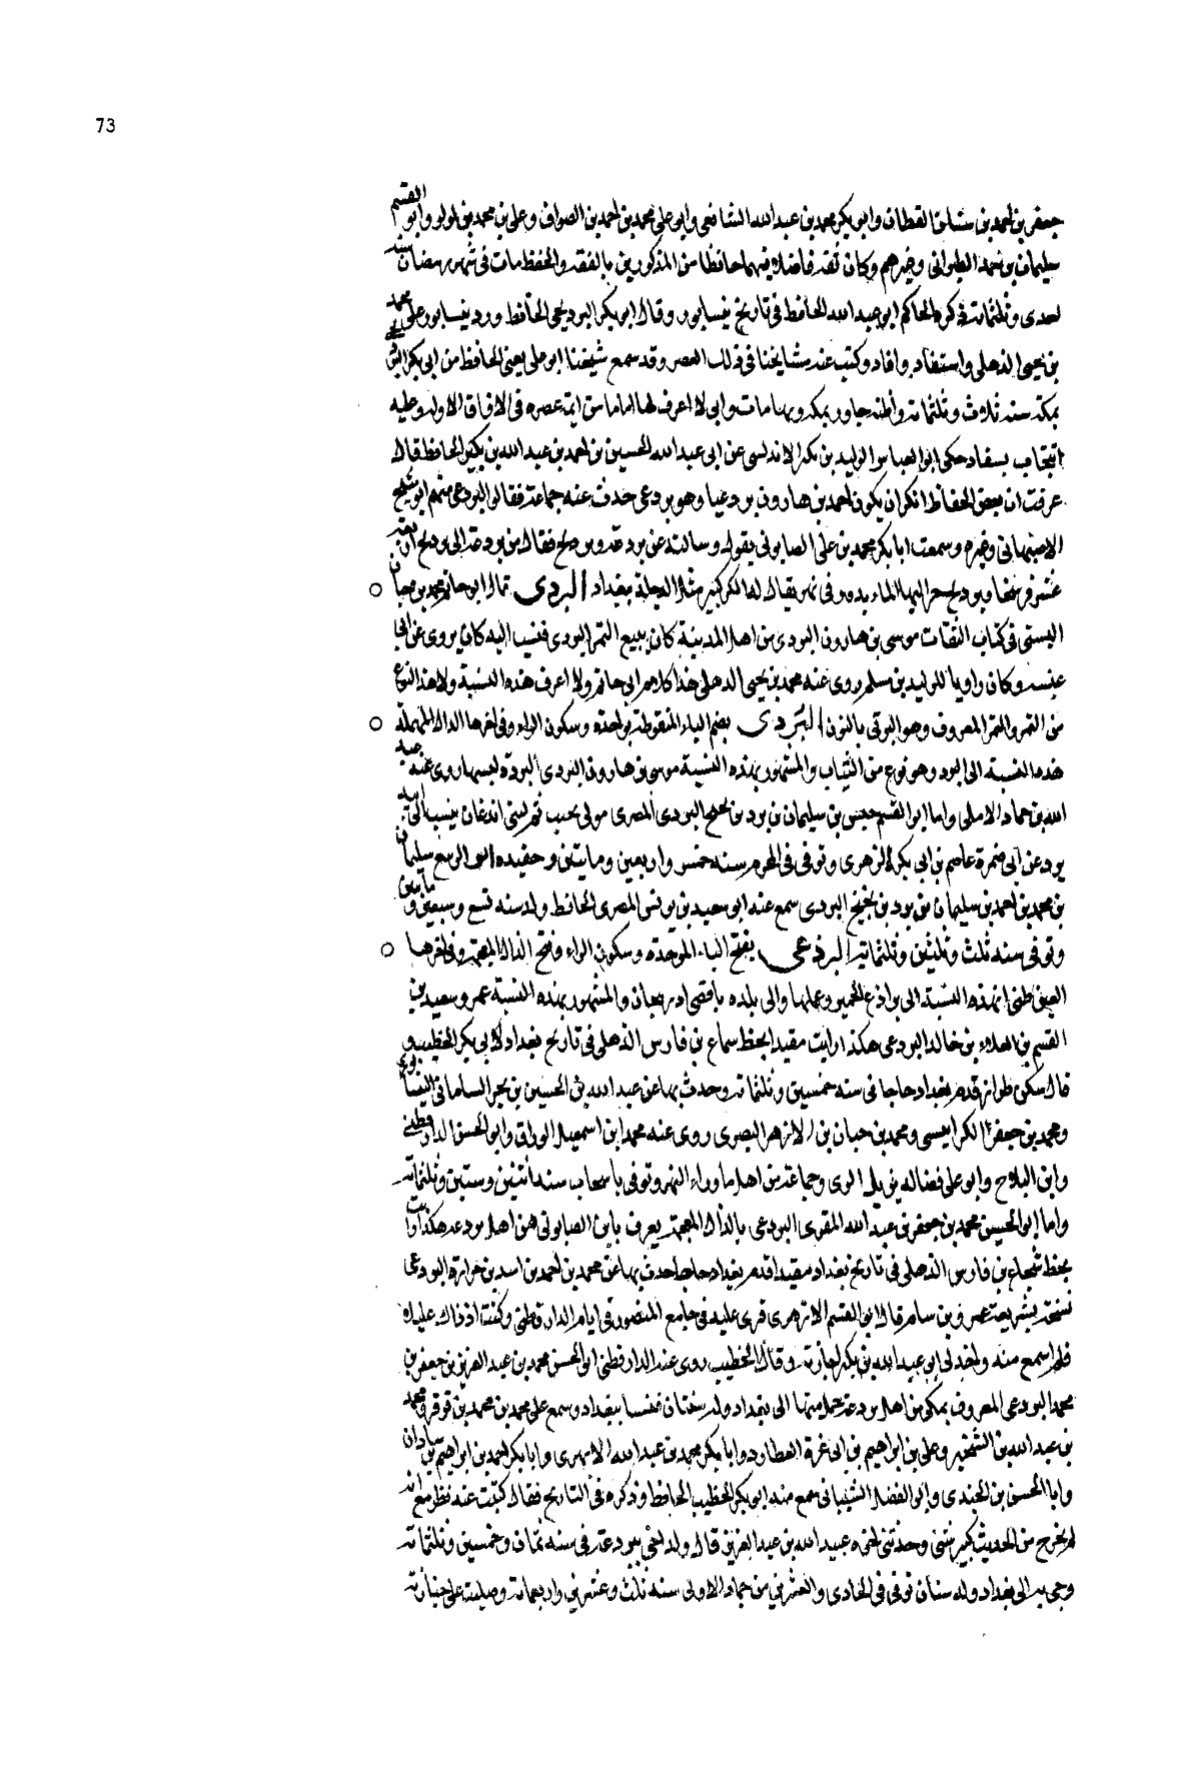 73
جعفر بن احمد بن القطان وابو بكر محمد بن عبد الله الشافعي وابو على محمد بن احمد بن الصواف وعلى بن محمد بن لولو وابو القسم
سليمان بن احمد الطبرانى وغيرهم وكان ثقة فاضلا فهما حافظا من المذكورين بالفقه والحفظ مات فى شهر رمضان سنه
احدى وثلثمائة ذكره الحاكم ابو عبد الله الحافظ فى تاريخ نيسابور وقال ابو بكر البرديجى الحافظ ورد نيسابور على محمد
بن يحيى الذهلى واستفاد وافاد وكتب عنه مشايخنا فى ذلك العصر وقد سمع شيخنا ابو على يعنى الحافظ من ابى بكر
بمكة سنه ثلاث وثلثمائة واظنه جاور بمكة وبها مات وانى لا اعرف لها اماما من ايمة عصره فى الافاق الا وله عليه
انتخاب يستفاد حكى ابو العباس الوليد بن بكر الاندلسى عن ابى عبد الله الحسين بن احمد بن عبد الله بن بكير الحافظ قال
عرفت ان بعض الحفاظ انكر ان يكون احمد بن هارون برديعيا وهو بردعى حدث عنه جماعة فقالوا البردعى منهم ابو شيخ
الاصبهانى وغيره وسمعت ابا بكر محمد بن على الصابونى يقول وسالته عن بردعة وبرديج فقال من بردعة الى برديج اربعة
عشر فرسخا وبرديج الماء يدور فى نهر يقال له الكر كبير مثل الدجلة ببغداد البردى قال ابو حاتم محمد بن حبان
البستى فى كتاب الثقات موسى بن هارون البردى من اهل المدينة كان يبيع التمر البردى فنسب اليه كان يروى عن ابى
عنبسه وكان راويا للوليد بن مسلم روى عنه محمد بن يحيى الذهلى هذا كلام ابى حاتم ولا اعرف هذه النسبة ولا هذا النوع
من التمر والتمر المعروف وهو البرنى بالنون البُردى بضم الباء المنقوطة بواحده وسكون الراء وفى اخرها الدال المهملة
هذه النسبة الى البرد وهو نوع من الثياب والمشهور بهذه النسبة موسى بن هارون البردى البردة لبسها روى عنه عبد
الله بن حماد الاملى واما ابو القسم حبيش بن سليمان بن برد بن نجيح البردى المصرى مولى تجيب ثم لبنى ايدعان ينسب الى ابيه
برد عن ابى ضمرة عاصم بن ابى بكر الزهرى وتوفى فى المحرم سنه خمس واربعين ومايتين وحفيده ابو الربيع سليمان
بن محمد بن احمد بن سليمان بن برد بن نجيح البردى سمع عنه ابو سعيد بن يونس المصرى الحافظ ولد سنه تسع وسبعين ومايتين
وتوفى سنه ثلث وثلثين وثلثمائة البرذعى بفتح الباء الموحده وسكون الراء وفتح الذال المعجمة وفى اخرها
العين ظنى ان هذه النسبة الى براذع الحمير وعملها والى بلده باقصى اذربيجان والمشهور بهذه النسبة عمرو سعيد بن
القسم بن العلاء بن خالد البردعى هكذا رايت مقيدا بخط شجاع بن فارس الذهلى فى تاريخ بغداد لابى بكر الخطيب و
قال سكن طراز قدم بغداد حاجا فى سنه خمسين وثلثمائة وحدث بها عن عبد الله بن الحسين بن بحر السامانى النيسابورى
ومحمد بن جعفر الكرابيسى ومحمد بن حبان بن الازهر البصرى روى عنه محمد بن اسمعيل الوراق وابو الحسن الدارقطنى
وابن الثلاج وابو على فضاله الرى وجماعة من اهل ما وراء النهر وتوفى باسبيجاب سنه اثنين وستين وثلثمائة
واما ابو الحسين محمد بن جعفر بن عبد الله المقرى البرذعى بالذال المعجمة يعرف بابن الصابونى من اهل بردعة هكذا رايت
بخط شجاع بن فارس الذهلى فى تاريخ بغداد مقيدا قدم بغداد حاجا حدث بها عن محمد بن احمد بن اسد بن حرارة البردعى
نسخة عمرو بن سلمة قال ابو القسم الازهرى قرى عليه فى جامع المنصور فى ايام الدارقطنى وكنت اذ ذاك عليلا
فلم اسمع منه واخذ لى ابو عبد الله بن بكير اجازته وقال الخطيب روى عنه الدارقطنى ابو الحسن محمد بن عبد العزيز بن جعفر بن
محمد البرذعى المعروف بمكى من اهل بردعة حمل منها الى بغداد وله سنتان فنشا ببغداد وسمع على محمد بن محمد بن ومحمد
بن عبد الله بن الشخير وعلى بن ابراهيم بن ابى عزة العطار وابا بكر محمد بن عبد الله الابهرى وابا بكر احمد بن ابراهيم بن شاذان
وابا الحسن بن الجندى وابى الفضل الشيبانى سمع منه ابو بكر الخطيب الحافظ وذكره فى التاريخ فقال كتبت عنه نظر مع انه
لم يخرج من الحديث كبير شى وحدثنى اخوه عبيد الله بن عبد العزيز قال ولد اخى ببردعة فى سنه ثمان وخمسين وثلثمائة
وجى به الى بغداد وله سنتان توفى فى الحادى والعشرين من جماد الاولى سنه ثلث وعشرين واربعمائة وصليت على جنازته